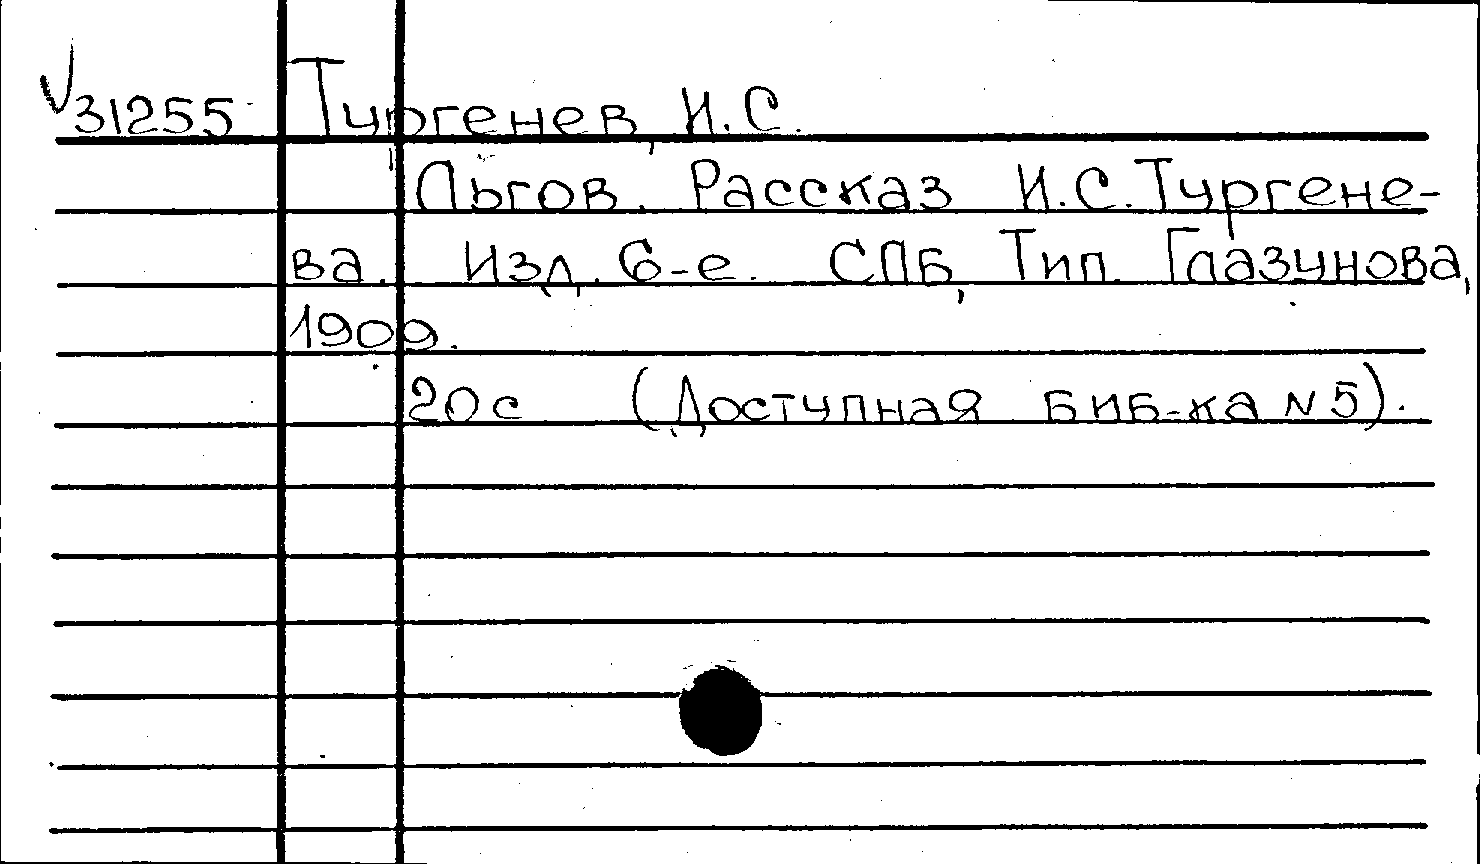 √31255 Тургенев, И.С.
Льгов. Рассказ И.С.Тургене-
ва. Изд. 6-е. СПБ, Тип. Глазунова,
1909.
20с (Доступная биб-ка №5).